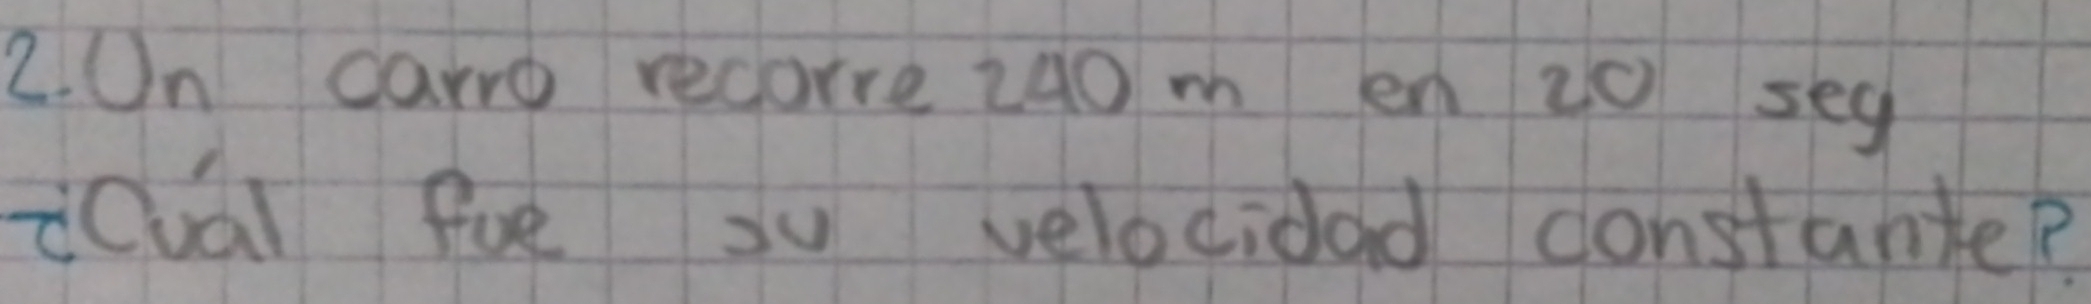 2. Un carro recorre 240 m en 20 seg
¿Cuál fue su velocidad constante?